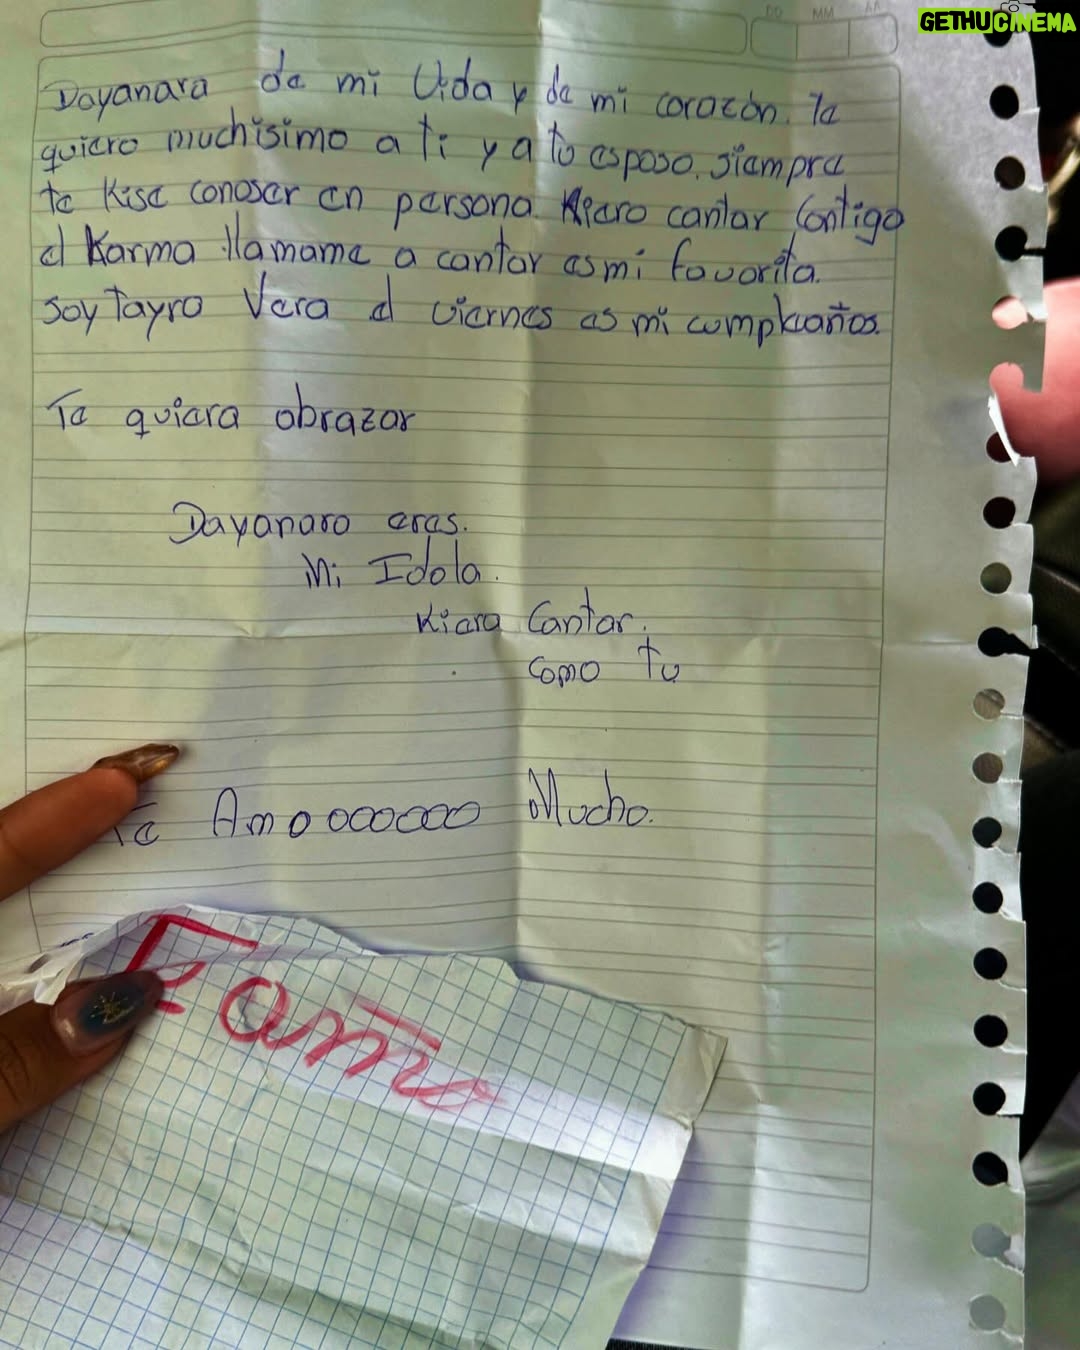 GETHUCINEMA
DD MM AA
Dayanara de mi Vida y de mi corazón. te
quiero muchisimo a ti y a tu esposo. siempre
te Kise conoser en persona. Kiero cantar Contigo
el Karma llamame a cantar es mi favorita.
soy Tayro Vera el viernes es mi cumpleaños.
Te quiera abrazar
Dayanara eres.
Mi Idola.
Kiera Cantar.
Como Tu
Te Amooooooo Mucho.